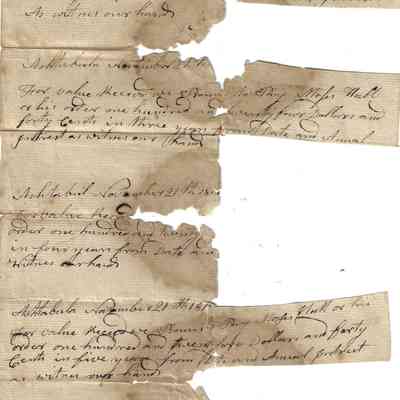 As witness our hands
Ashtabula November 21th
For value Received we Promis to Pay Moses Hall
or his order one hundred and twenty four Dollars and
forty Cents in three years from Date and Annual
as witness our hands
Ashtabul November 21th
for value
order one hundred and twenty
in four years from Date
witness our hands
Ashtabula November 21th
For value Received we Promis Pay Moses Hall or his
order one hundred and four Dollars and forty
Cents in five years from Date and Annual
as witness our hands